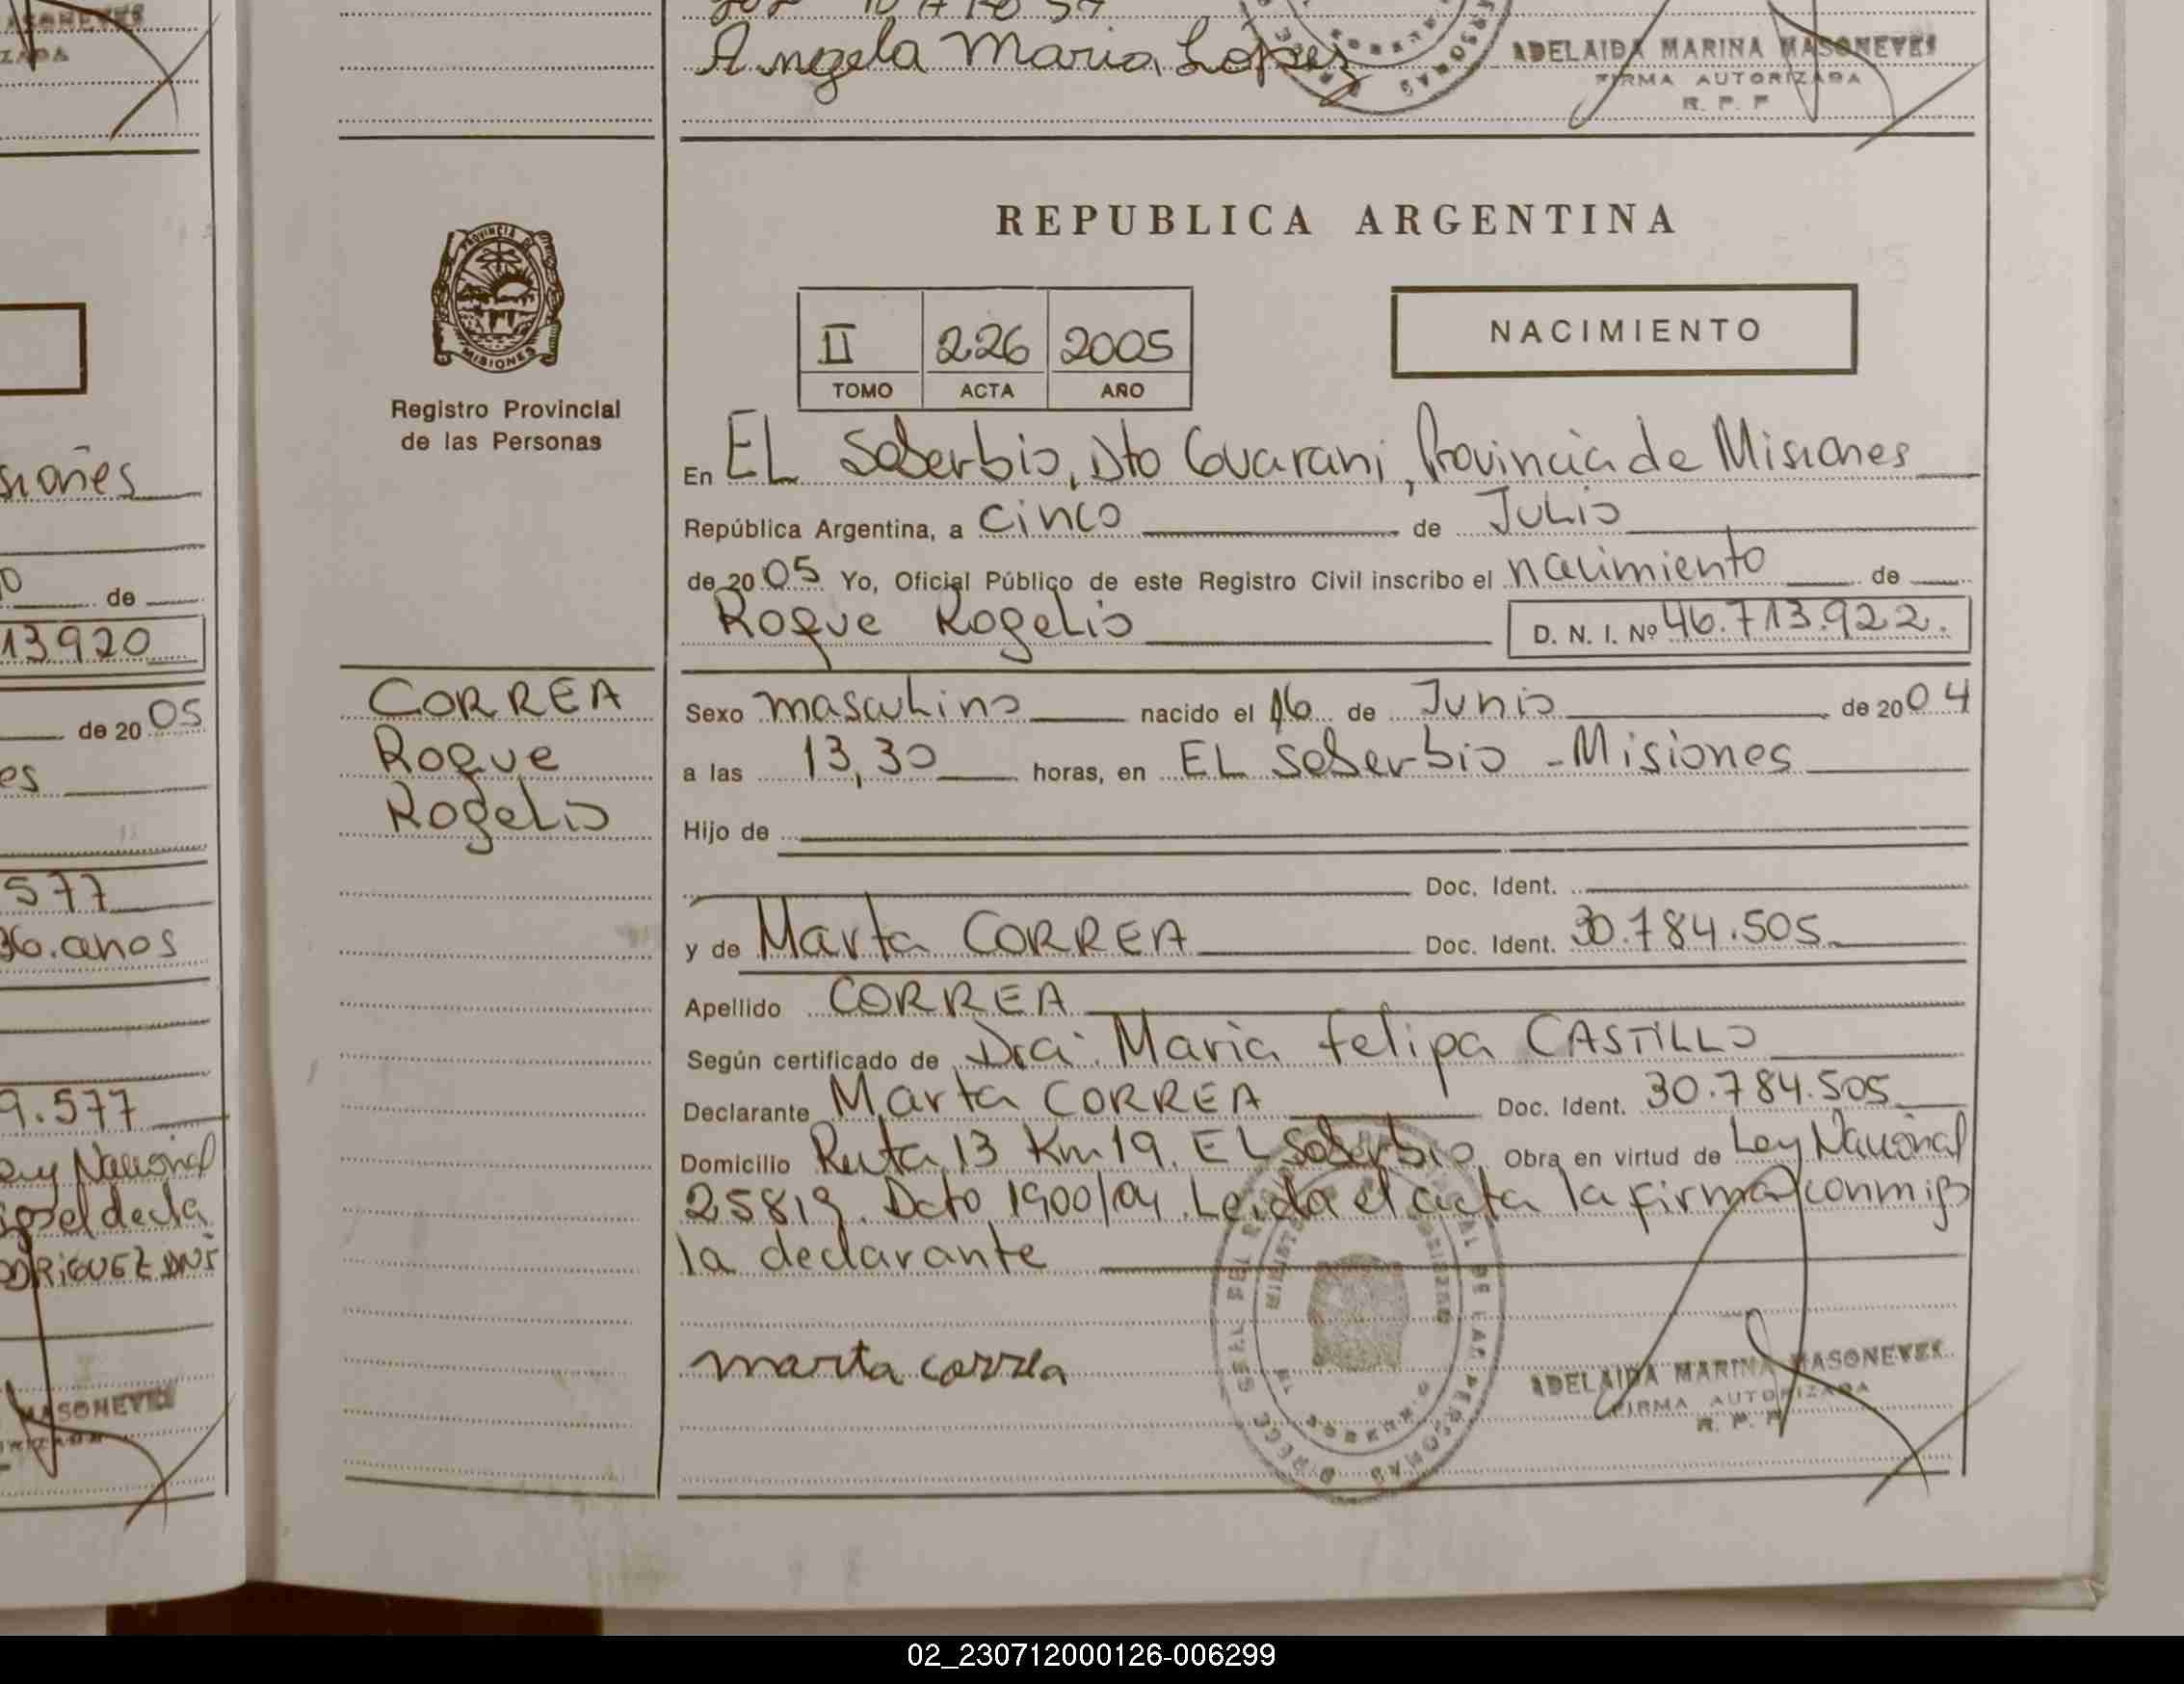 Angela Maria López
ADELAIDA MARINA MASONEVES
FIRMA AUTORIZADA
R. P. P
PROVINCIA DE
MISIONES
Registro Provincial
de las Personas
REPUBLICA ARGENTINA
II 226 2005
TOMO ACTA AÑO
NACIMIENTO
En EL Soberbio, Dto Guarani, Provincia de Misiones
República Argentina, a cinco de Julio
de 2005 Yo, Oficial Público de este Registro Civil inscribo el nacimiento de
Roque Rogelio D. N. I. Nº 46.713.922.
CORREA
Roque
Rogelio
Sexo masculino nacido el 16 de Junio de 2004
a las 13,30 horas, en EL Soberbio - Misiones
Hijo de
Doc. Ident.
y de Marta CORREA Doc. Ident. 30.784.505
Apellido CORREA
Según certificado de Dra. Maria Felipa CASTILLO
Declarante Marta CORREA Doc. Ident. 30.784.505
Domicilio Ruta 13 Km 19. EL Soberbio Obra en virtud de Ley Nacional
25819. Dcto 1900/04. Leida el acta la firma conmigo
la declarante
marta correa
ADELAIDA MARINA MASONEVES
FIRMA AUTORIZADA
R. P. P
siones
de
13920
de 2005
es
577
36. anos
9.577
Ley Nacional
MASONEVES
02_230712000126-006299